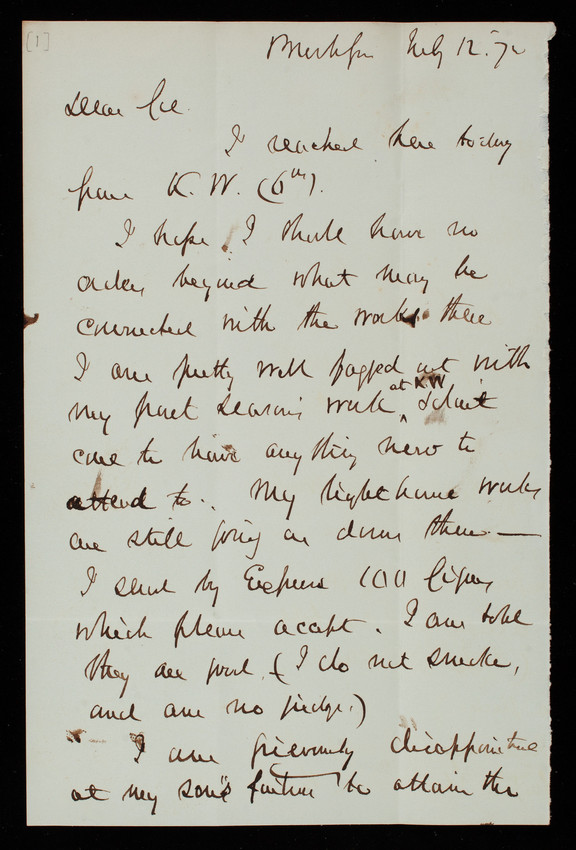 [1]
July 12. 72
Dear Col.
I reached here today
from K. W. (6th).
I hope I shall have no
orders beyond what may be
connected with the works there
I am pretty well fagged out with
my past season's work at KW, & don't
care to have anything new to
attend to. My light house works
are still going on down there —
I send by Express 100 Cigars
which please accept. I am told
they are good. (I do not smoke,
and am no judge.)
I am grievously disappointed
at my son's failure to attain the